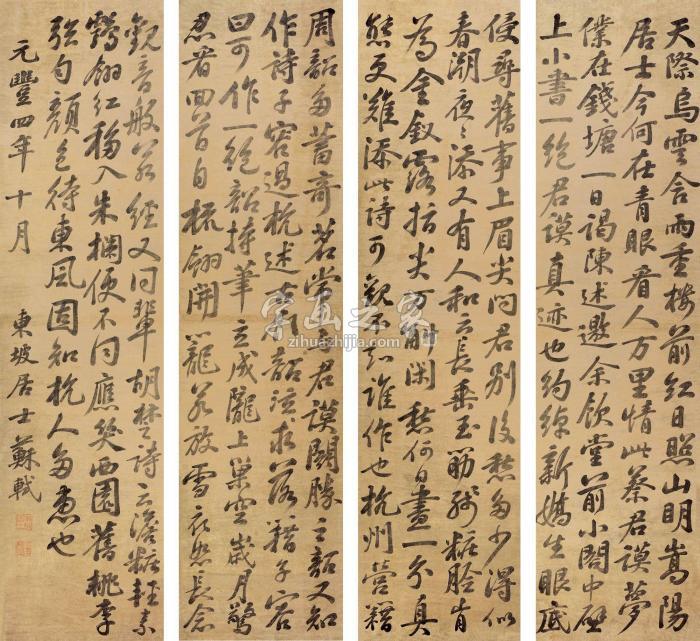 天際烏雲含雨重樓前紅日照山明嵩陽
居士今何在青眼看人万里情此蔡君謨夢
僕在錢塘一日謁陳述邀余飲堂前小閣中壁
上小書一絶君謨真迹也約綽新嬌生眼底
侵尋舊事上眉尖問君別後愁多少得似
春潮夜〻添又有人和云長垂玉筯殘粧臉肯
為金釵露指尖万斛閑愁何日盡一分真
態更難添此詩可觀不知誰作也杭州營籍
周韶多蓄奇茗常與君謨鬭勝之韶又知
作詩子容過杭述古飲韶泣求落籍子容
曰可作一絶韶持筆立成隴上巢空歲月驚
忍看回首自梳翎開籠若放雪衣女長念
觀音般若經又同輩胡楚詩云澹粧輕素
鶴翎紅移入朱欄便不同應笑西園舊桃李
強勻顔色待東風固知杭人多惠也
元豐四年十月 東坡居士蘇軾
字画之家
zihuazhijia.com